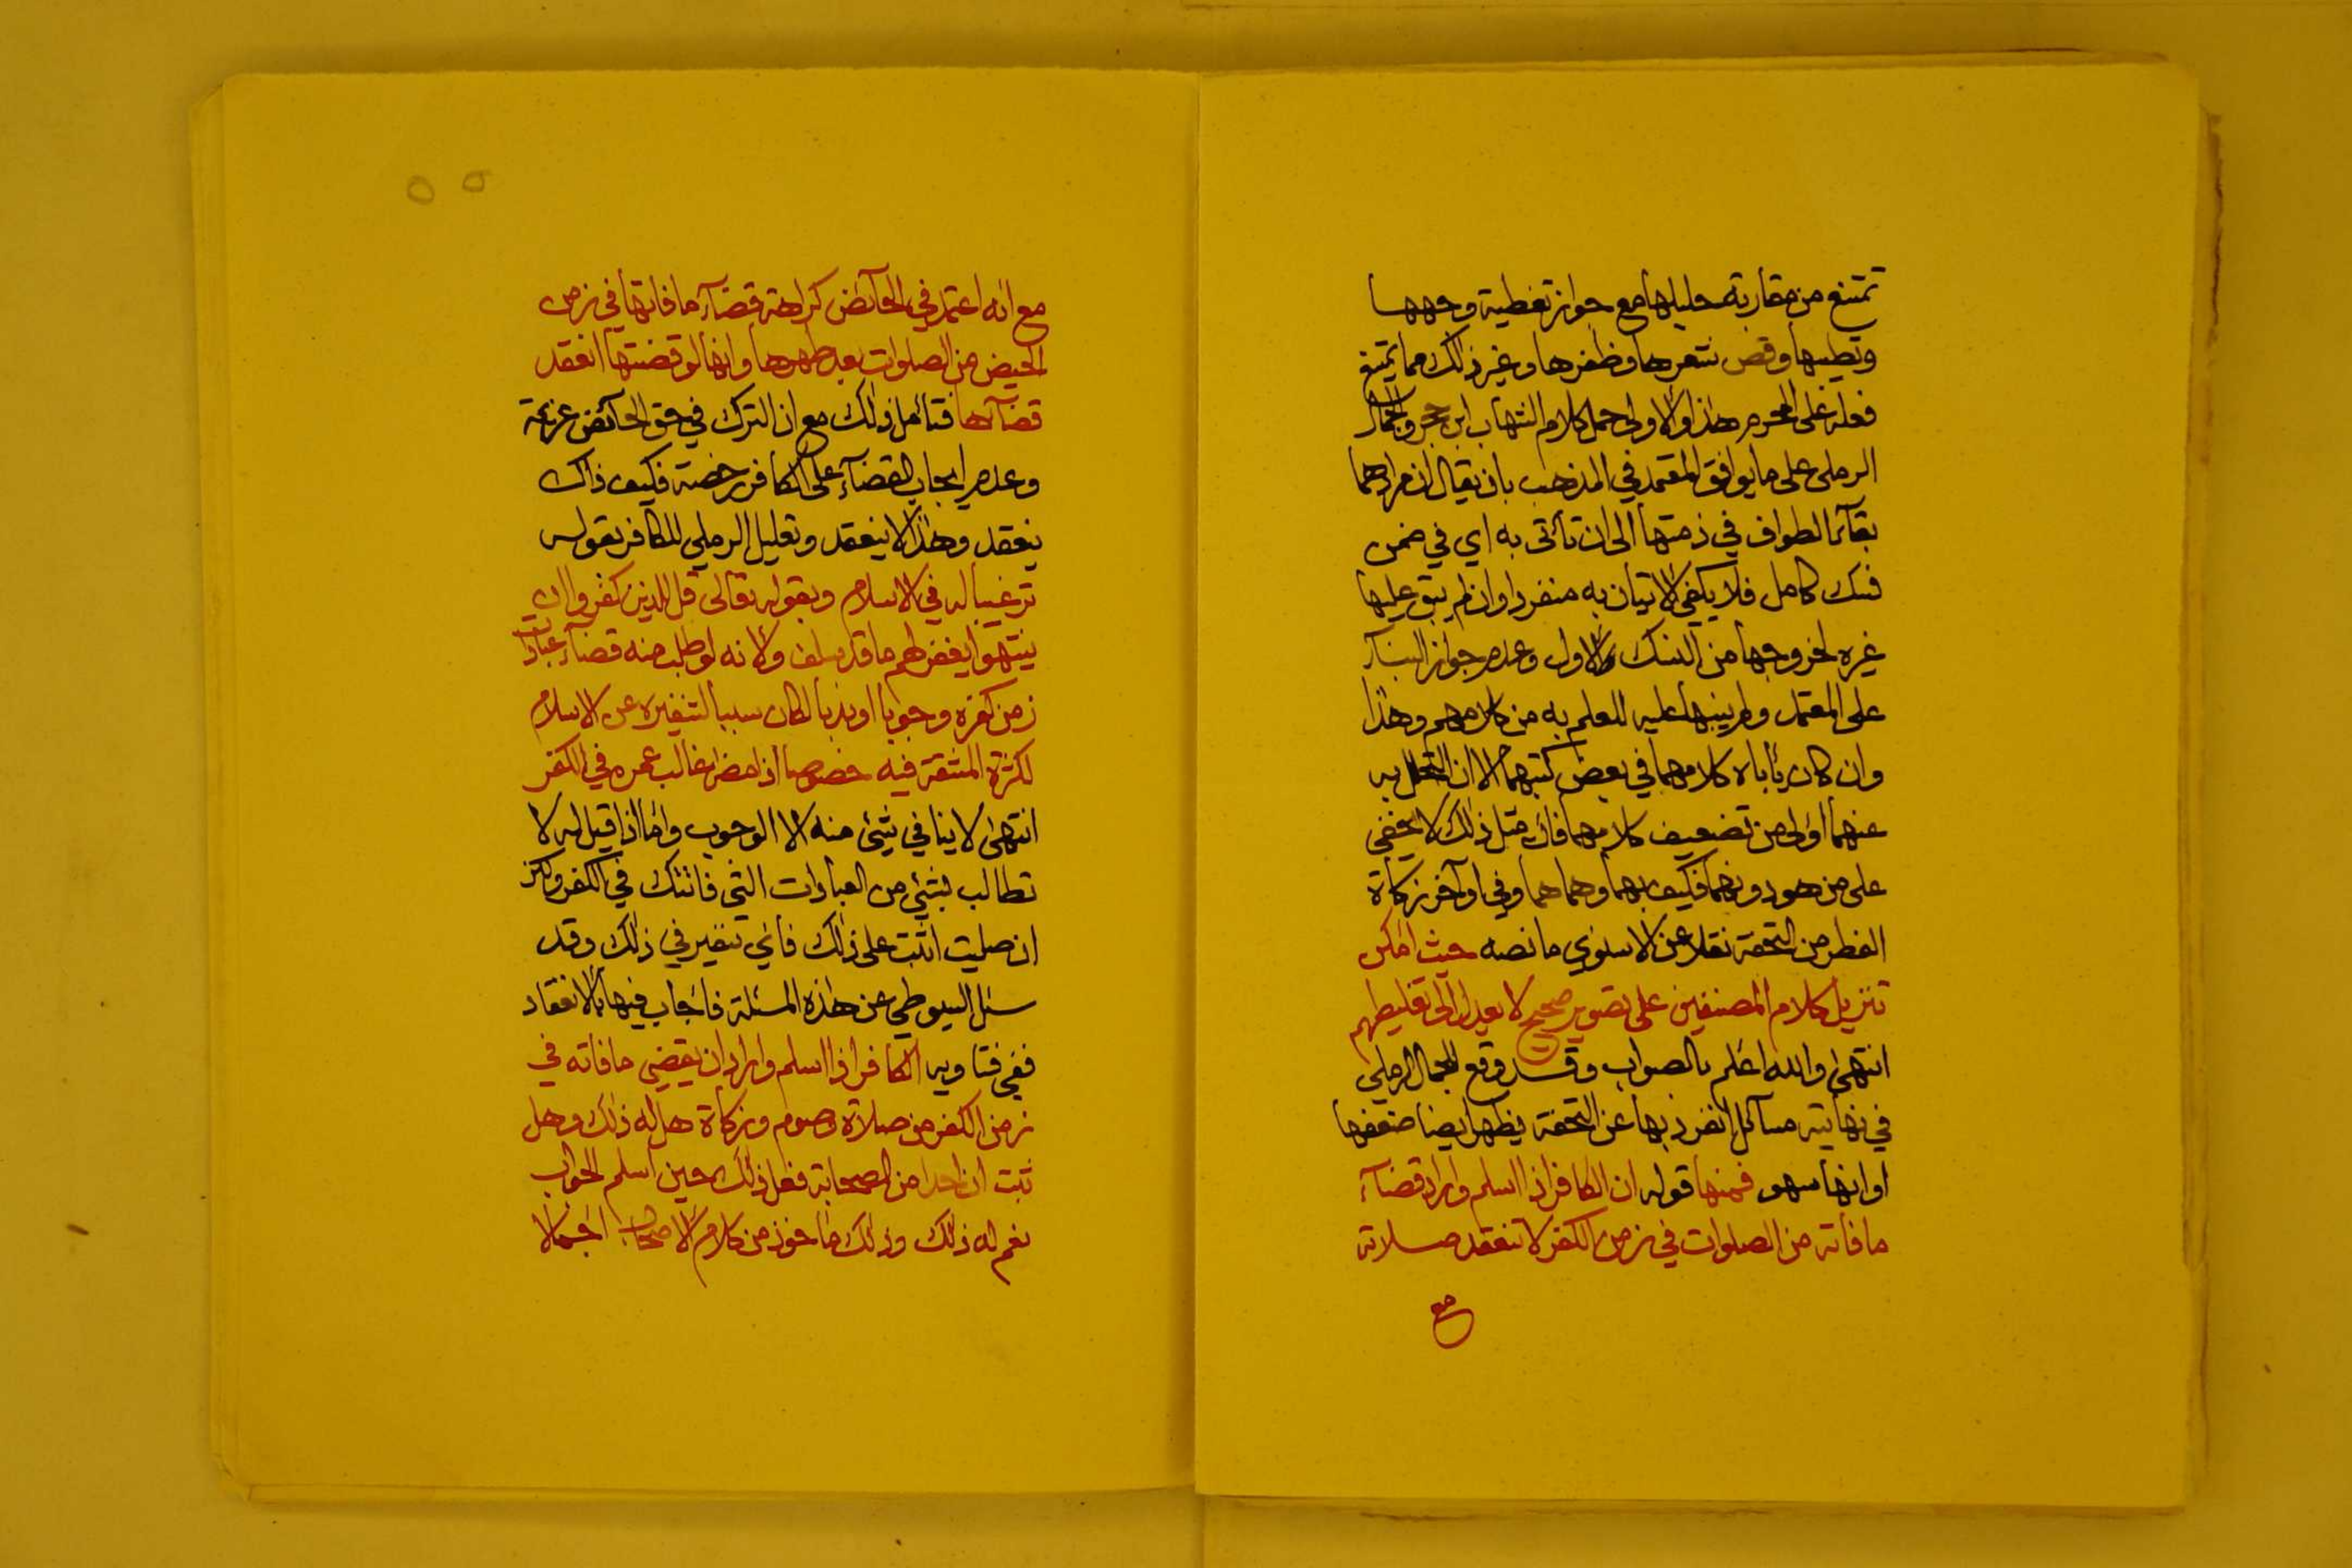 تمتنع من مقاربة حليلها مع جواز تغطية وجهها
وتطيبها وقص شعرها وظفرها وغير ذلك مما يمتنع
فعله على المحرم هذا والاولى حمل كلام الشهاب ابن حجر والجمال
الرملي على ما يوافق المعتمد في المذهب بان يقال ان مرادهما
بقآء الطواف في ذمتها الى ان تأتى به اي في ضمن
نسك كامل فلا يكفي الاتيان به منفردا وان لم يبق عليها
غيره لخروجها من النسك الاول وعدم جواز البنآء
على المعتمد ولم ينبها عليه للعلم به من كلامهم وهذا
وان كان يأباه كلامهما في بعض كتبهما الا ان التحمل به
عنهما اولى من تضعيف كلامهما فان مثل ذلك لا يخفى
على من هو دونهما فكيف بهما وهما هما وفي اوآخر زكاة
الفطر من التحفة نقلا عن الاسنوي ما نصه حيث امكن
تنزيل كلام المصنفين على تصوير صحيح لا يعدل الى تغليطهم
انتهى والله اعلم بالصواب وقد وقع للجمال الرملي
في نهايته مسآئل انفرد بها عن التحفة يظهر ايضا ضعفها
او انها سهو فمنها قوله ان الكافر اذا اسلم واراد قضآء
ما فاته من الصلوات في زمن الكفر لا تنعقد صلاته
مع
٥٥
مع انه اعتمد في الحآئض كراهة قضآء ما فاتها في زمن
الحيض من الصلوات بعد طهرها وانها لو قضتها انعقد
قضآءها فتأمل ذلك مع ان الترك في حق الحآئض عزيمة
وعدم ايجاب القضآء على الكافر رخصة فكيف ذاك
ينعقد وهذا لا ينعقد وتعليل الرملي للكافر بقوله
ترغيبا له في الاسلام وبقوله تعالى قل للذين كفروا ان
ينتهوا يغفر لهم ما قد سلف ولانه لو طلب منه قضآء عبادات
زمن كفره وجوبا او ندبا لكان سببا لتنفيره عن الاسلام
لكثرة المشقة فيه خصوصا اذا مضى غالب عمره في الكفر
انتهى لا ينافي شيئ منه الا الوجوب واما اذا قيل له لا
تطالب بشيئ من العبادات التى فاتتك في الكفر ولكن
ان صليت اثبت على ذلك فاي تنفير في ذلك وقد
سئل السيوطي عن هذه المسئلة فاجاب فيها بالانعقاد
ففي فتاويه الكافر اذا اسلم واراد ان يقضي ما فاته في
زمن الكفر من صلاة وصوم وزكاة هل له ذلك وهل
ثبت ان احدا من الصحابة فعل ذلك حين اسلم الجواب
نعم له ذلك وذلك مأخوذ من كلام الاصحاب اجمالا